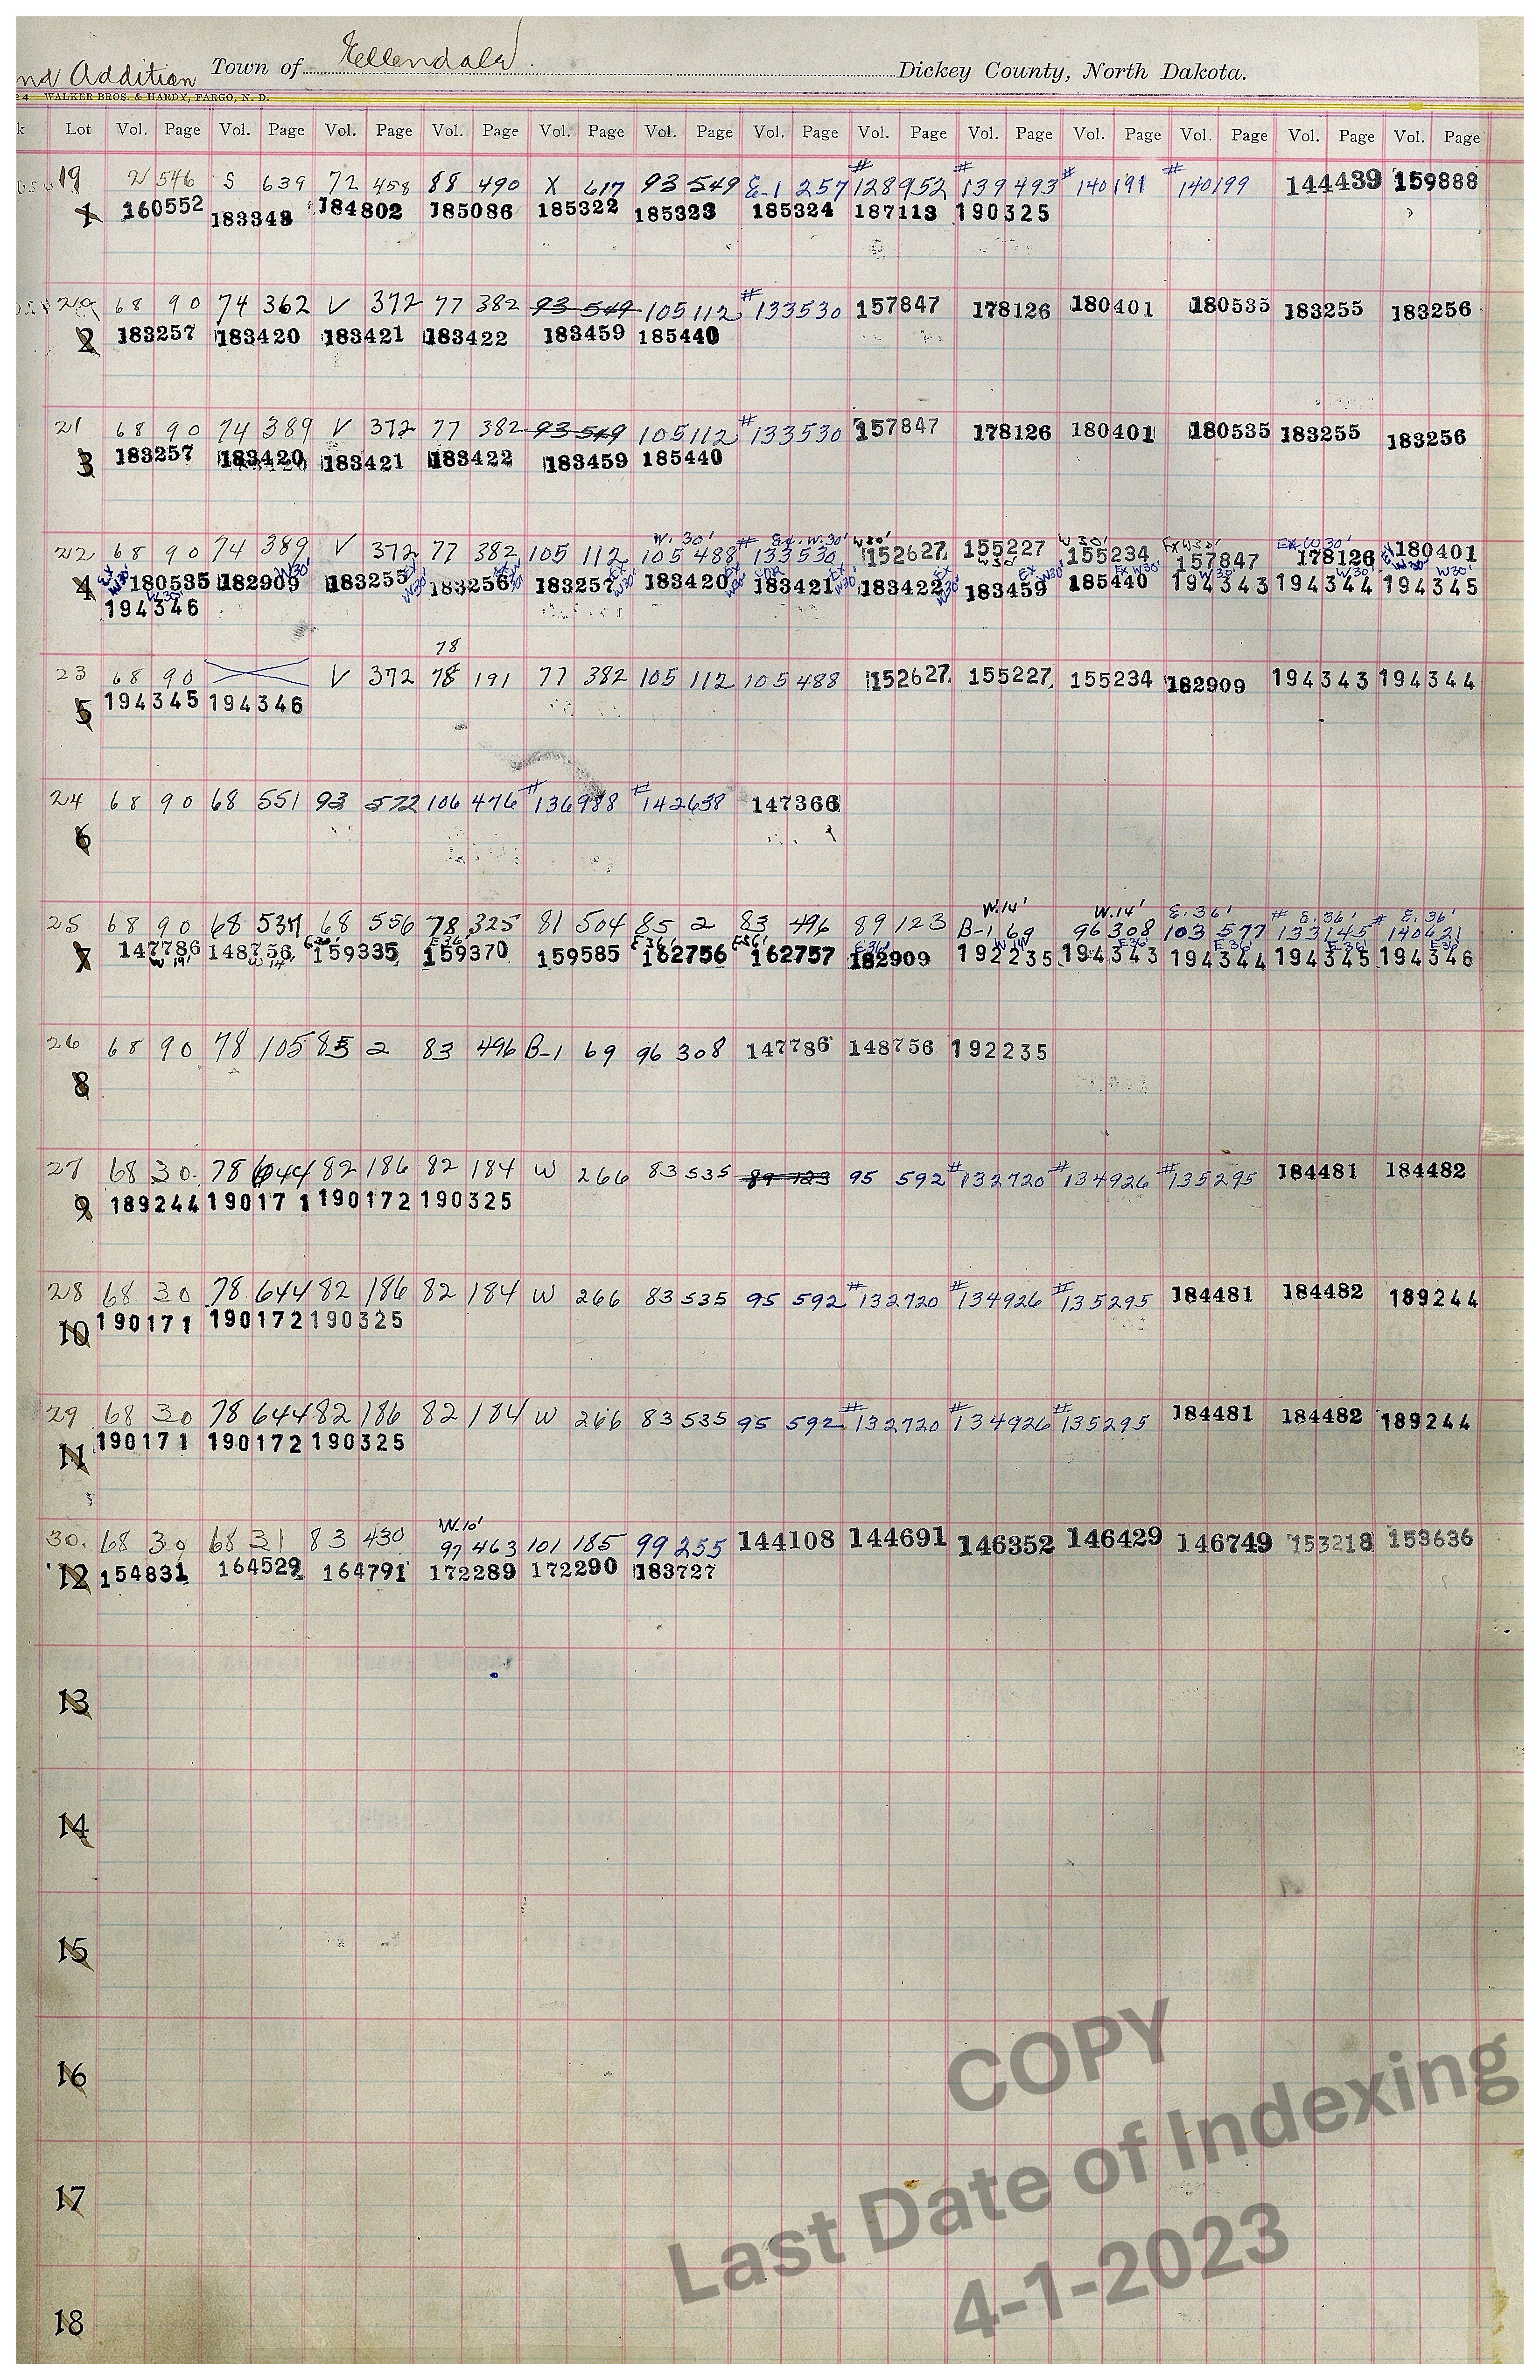 nd Addition Town of Ellendale Dickey County, North Dakota.
24 WALKER BROS. & HARDY, FARGO, N. D.
k Lot Vol. Page Vol. Page Vol. Page Vol. Page Vol. Page Vol. Page Vol. Page Vol. Page Vol. Page Vol. Page Vol. Page Vol. Page Vol. Page
19 546 S 639 72 458 88 490 X 617 93 549 E-1 257 #128952 #139493 #140191 #140199 144439 159888
1 160552 183348 184802 185086 185322 185323 185324 187113 190325
20 68 90 74 362 V 372 77 382 93 549 105 112 #133530 157847 178126 180401 180535 183255 183256
2 183257 183420 183421 183422 183459 185440
21 68 90 74 389 V 372 77 382 93 549 105 112 #133530 157847 178126 180401 180535 183255 183256
3 183257 183420 183421 183422 183459 185440
W. 30' Ex. W. 30' W30' W 30' Ex W30' Ex. W 30'
22 68 90 74 389 V 372 77 382 105 112 105 488 #133530 152627 155227 155234 157847 178126 180401
W30'
4 Ex W30' 180535 182909 W30' 183255 Ex W30' 183256 183257 Ex W30' 183420 Ex W30' 183421 Ex W30' 183422 Ex W30' 183459 Ex W30' 185440 Ex W30' 194343 W30' 194344 W30' 194345 W30'
194346 W30'
78
23 68 90 V 372 78 191 77 382 105 112 105 488 152627 155227 155234 182909 194343 194344
5 194345 194346
24 68 90 68 551 93 572 106 476 #136988 #142638 147366
6
W.14' W.14' E. 36' # E. 36' # E. 36'
25 68 90 68 537 68 556 78 325 81 504 85 2 83 496 89 123 B-1 69 96 308 103 577 133145 140621
7 147786 148756 159335 159370 159585 162756 162757 182909 192235 194343 194344 194345 194346
W 14' W 14' E36' E36' E36' E36' E36' W 14' E36' E36' E36' E36'
26 68 90 78 105 85 2 83 496 B-1 69 96 308 147786 148756 192235
8
27 68 30. 78 644 82 186 82 184 W 266 83 535 89 123 95 592 #132720 #134926 #135295 184481 184482
9 189244 190171 190172 190325
28 68 30 78 644 82 186 82 184 W 266 83 535 95 592 #132720 #134926 #135295 184481 184482 189244
10 190171 190172 190325
29 68 30 78 644 82 186 82 184 W 266 83 535 95 592 #132720 #134926 #135295 184481 184482 189244
11 190171 190172 190325
W.10'
30. 68 30 68 31 83 430 97 463 101 185 99 255 144108 144691 146352 146429 146749 153218 153636
12 154831 164529 164791 172289 172290 183727
13
14
15
16
17
18
COPY
Last Date of Indexing
4-1-2023